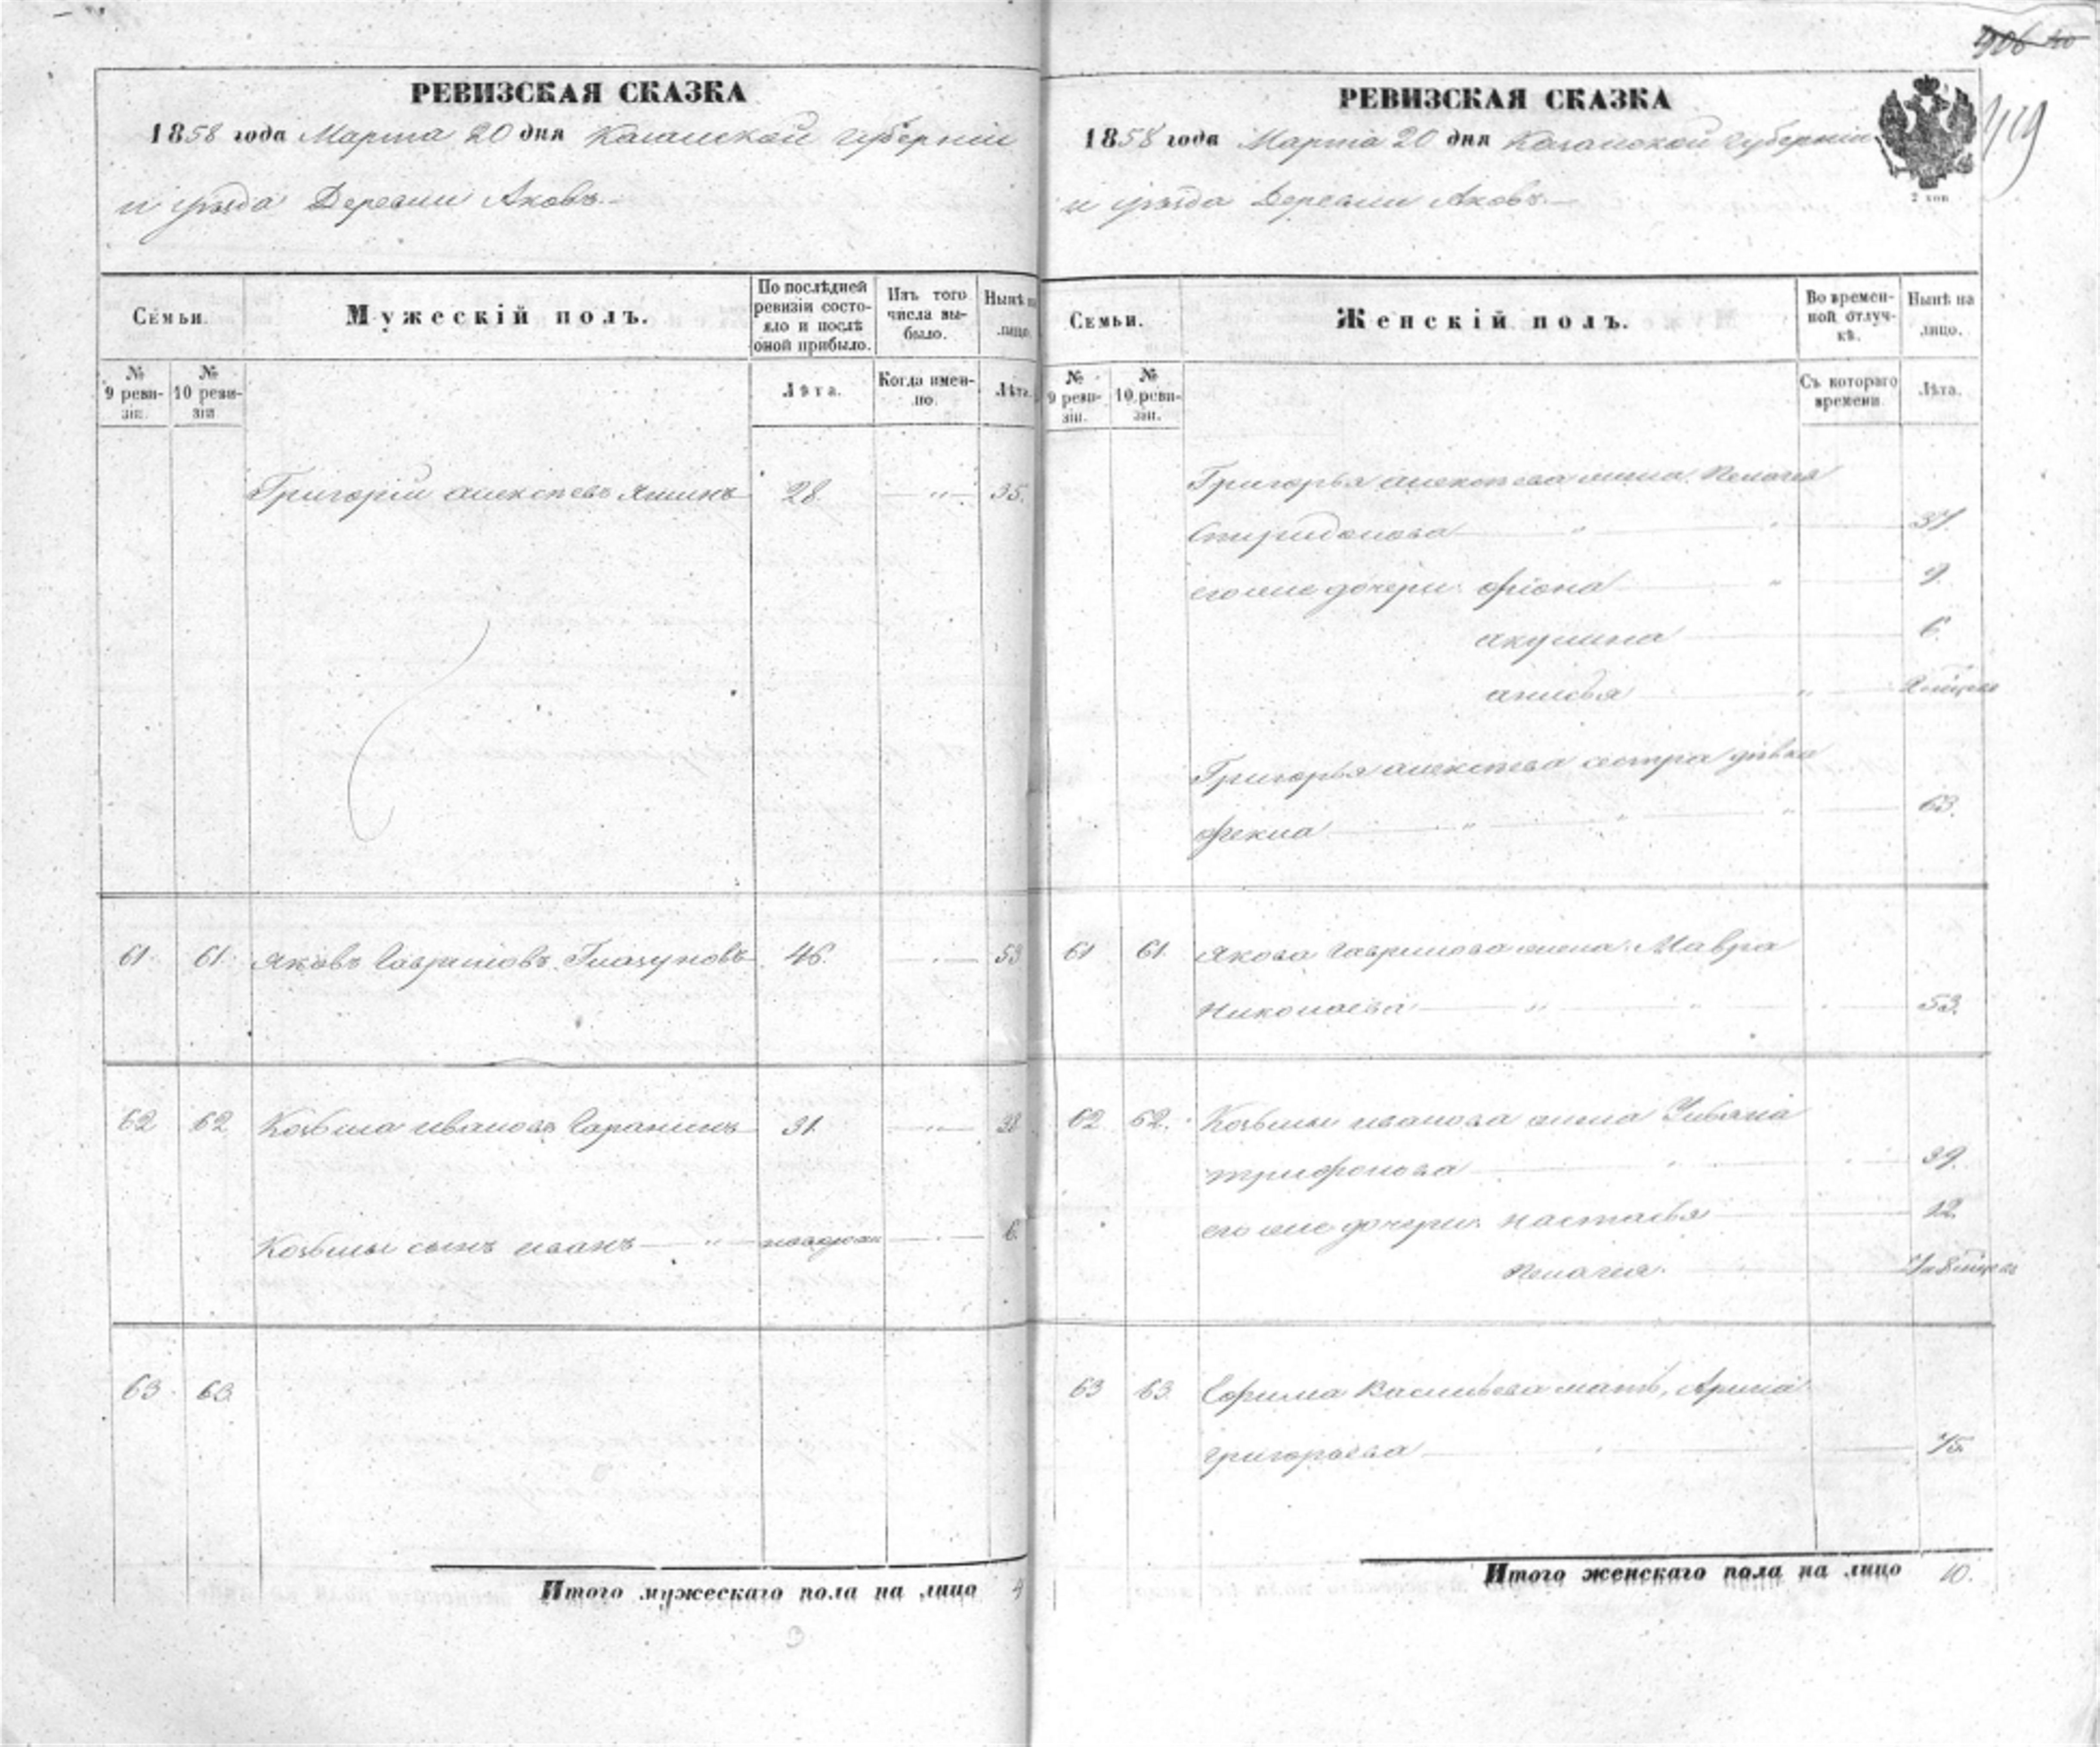 906
419
РЕВИЗСКАЯ СКАЗКА
1858 года Марта 20 дня Казанской губерніи
и уѣзда Деревни Аковъ.
Семьи.
Мужескій полъ.
По послѣдней ревизіи состояло и послѣ оной прибыло.
Изъ того числа выбыло.
Нынѣ на лицо.
№ 9 ревизіи.
№ 10 ревизіи
Лѣта.
Когда именно.
Лѣта.
Григорій алексѣевъ Яшинъ 28. — " — 35.
61. 61. Яковъ Гавриловъ Глазуновъ 46. — " — 53
62 62 Козьма ивановъ Саранинъ 31. — " — 38
Козьмы сынъ иванъ — " — — " — 6.
63. 63.
Итого мужескаго пола на лицо 4
3
РЕВИЗСКАЯ СКАЗКА
1858 года Марта 20 дня Казанской губерніи
и уѣзда Деревни Аковъ.
2 коп
Семьи.
Женскій полъ.
Во временной отлучкѣ.
Нынѣ на лицо.
№ 9 ревизіи.
№ 10 ревизіи.
Съ котораго времени.
Лѣта.
Григорья алексѣева жена Пелагея
Спиридонова 37.
его же дочери: Фіона 9.
акулина 6.
анисья
Григорья алексѣева сестра дѣвка
Фекла 63.
61 61. Якова Гаврилова жена Мавра
Николаева 53.
62 62. Козьмы иванова жена Ульяна
трифонова 39.
его же дочери: настасья 12.
Пелагея.
63 63. Ефима Васильева мать, Арина
григорьева 75.
Итого женскаго пола на лицо 10.